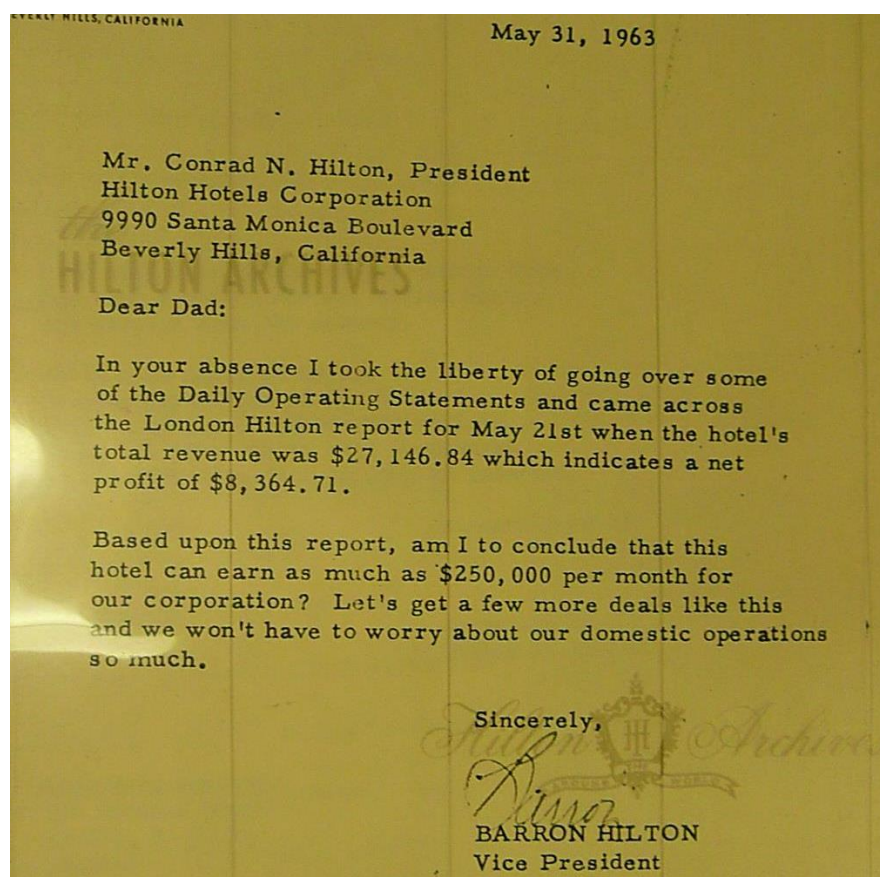 BEVERLY HILLS, CALIFORNIA
May 31, 1963
Mr. Conrad N. Hilton, President
Hilton Hotels Corporation
9990 Santa Monica Boulevard
Beverly Hills, California
the
HILTON ARCHIVES
Dear Dad:
In your absence I took the liberty of going over some
of the Daily Operating Statements and came across
the London Hilton report for May 21st when the hotel's
total revenue was $27,146.84 which indicates a net
profit of $8,364.71.
Based upon this report, am I to conclude that this
hotel can earn as much as $250,000 per month for
our corporation? Let's get a few more deals like this
and we won't have to worry about our domestic operations
so much.
Sincerely,
Hilton H Archives
AROUND THE WORLD
Barron
BARRON HILTON
Vice President